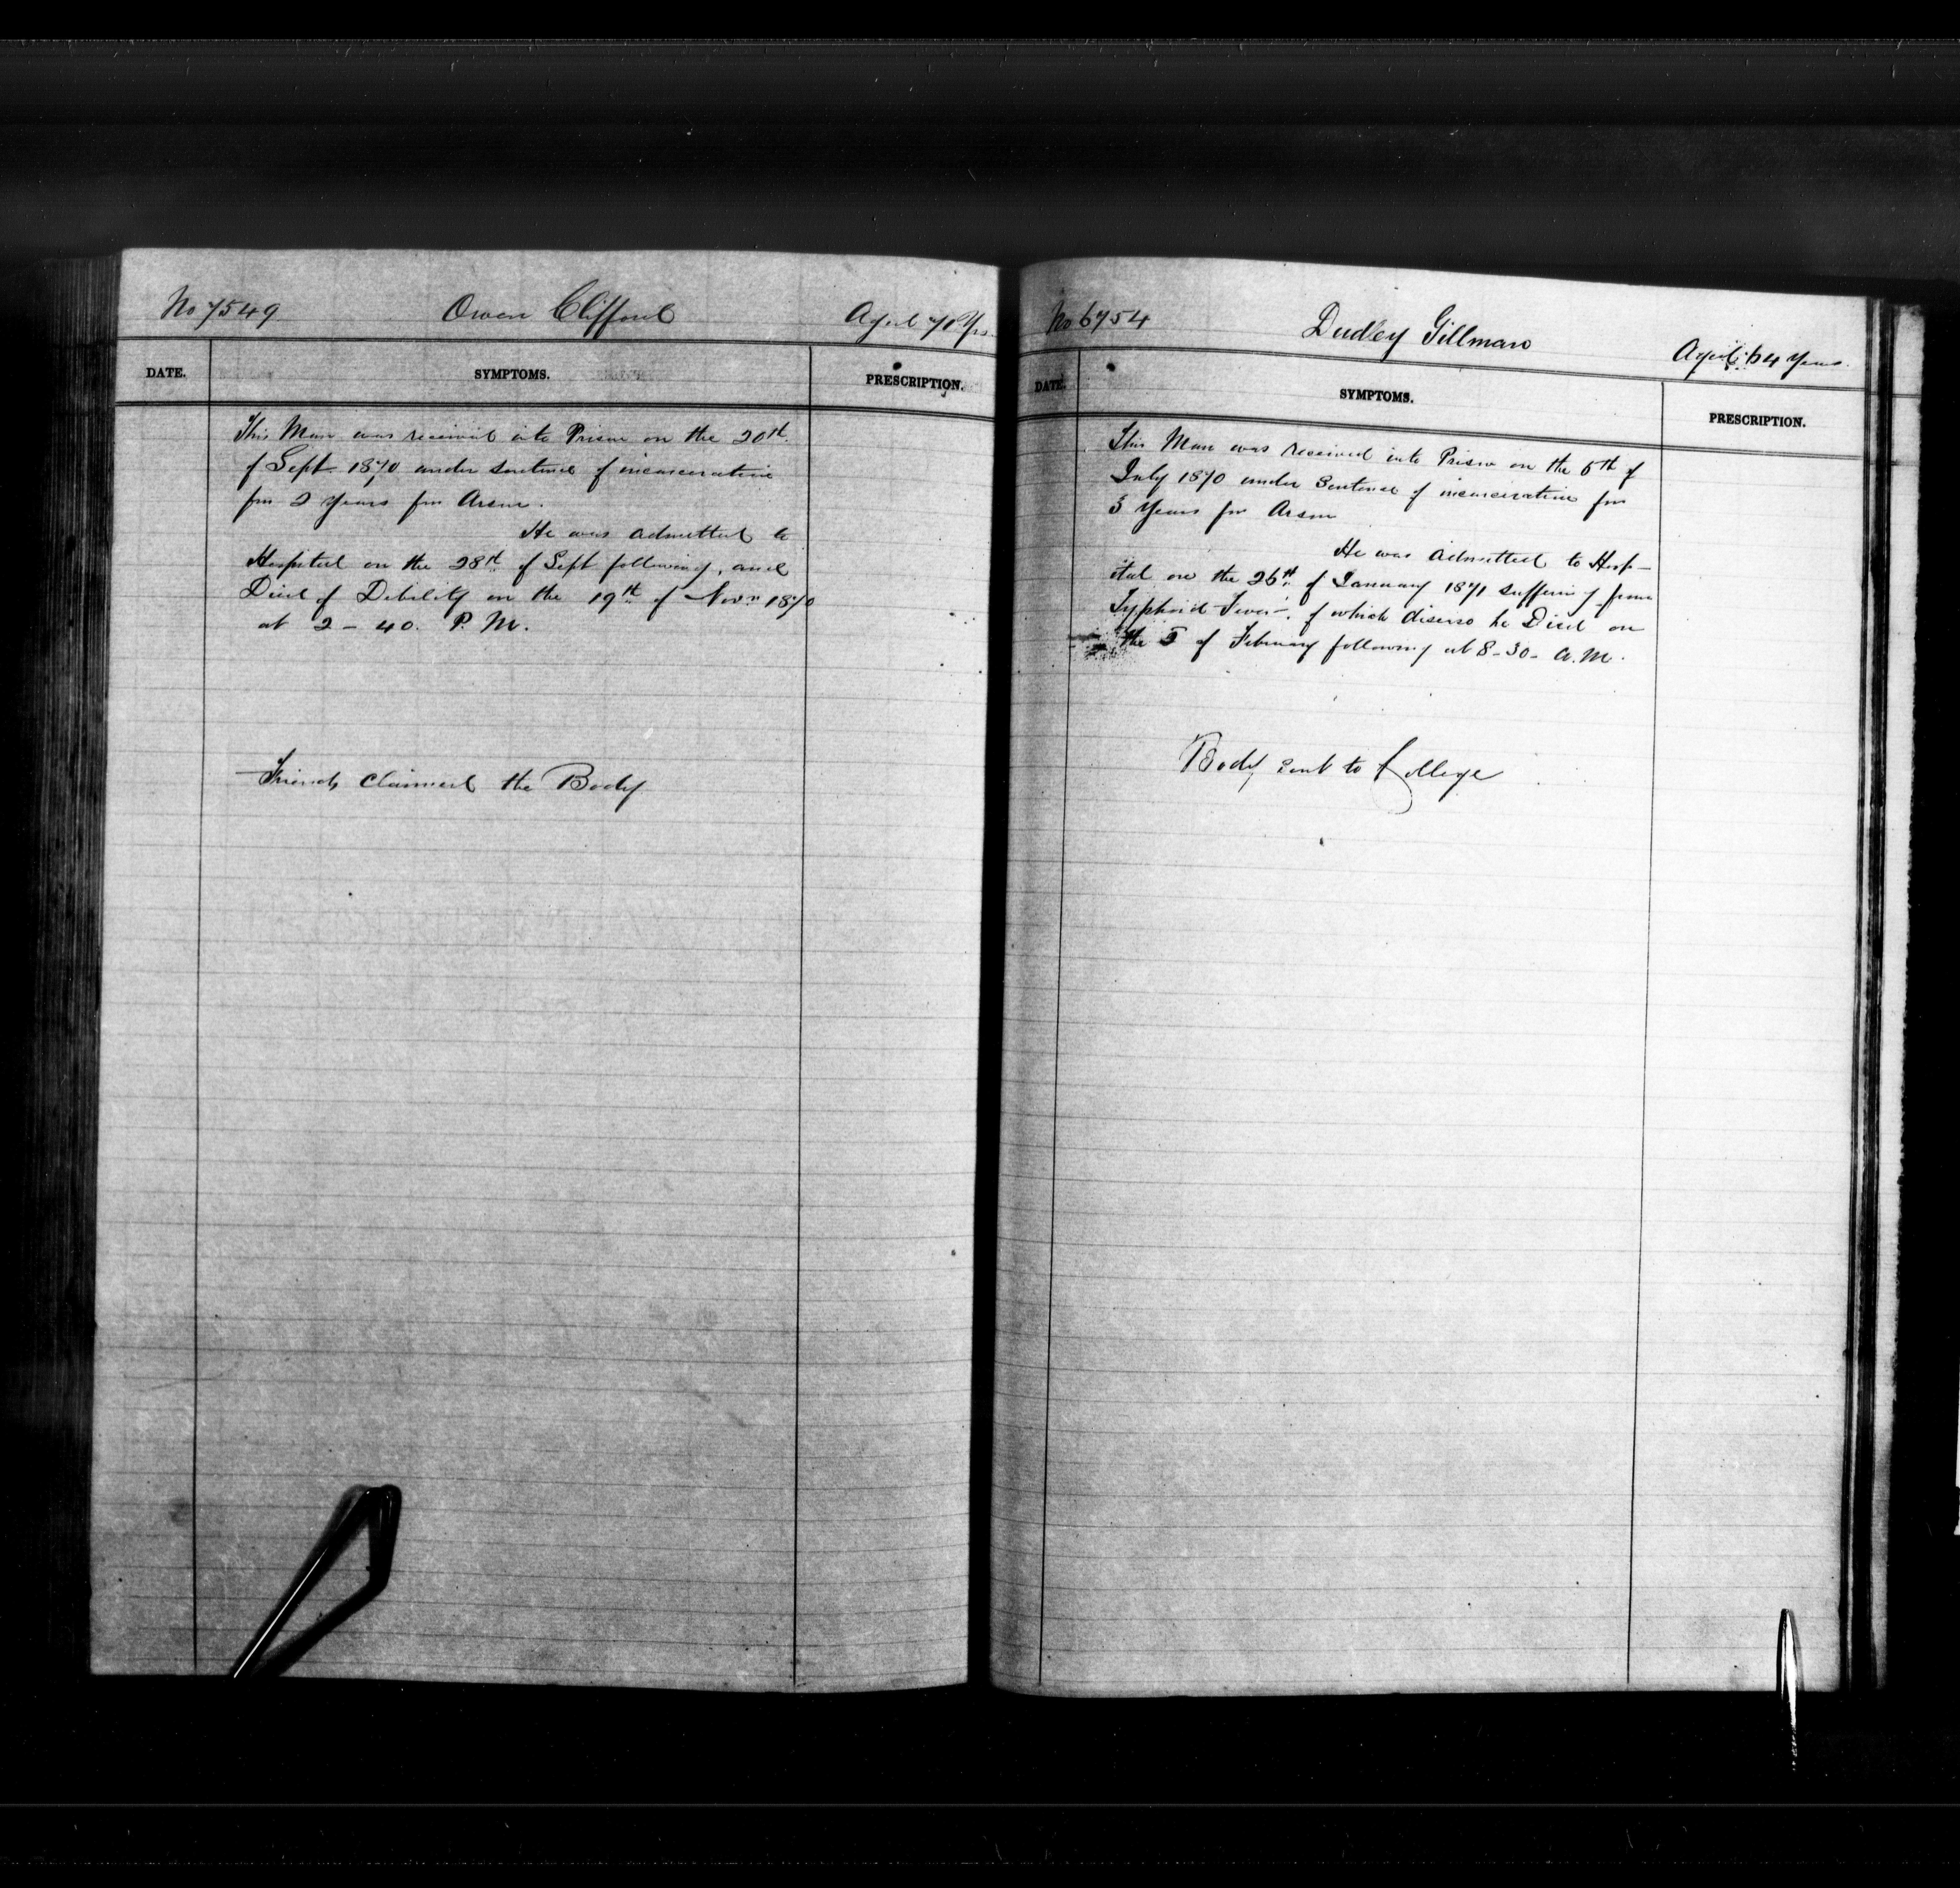 No 7549 Owen Clifford Aged 70 Yrs
DATE. SYMPTOMS. PRESCRIPTION.
This Man was received into Prison on the 20th
of Sept. 1870 under sentence of incarceration
for 2 Years for Arson.
He was admitted to
Hospital on the 28th of Sept following, and
Died of Debility on the 19th of Novr 1870
at 2-40. P. M.
Friends claimed the Body
No 6754 Dudley Gillman Aged 64 Years
DATE. SYMPTOMS. PRESCRIPTION.
This Man was received into Prison on the 6th of
July 1870 under Sentence of incarceration for
3 Years for Arson
He was admitted to Hosp-
ital on the 26th of January 1871 suffering from
Typhoid Fever, of which disease he Died on
the of February following at 8-30- A.M.
Body sent to College